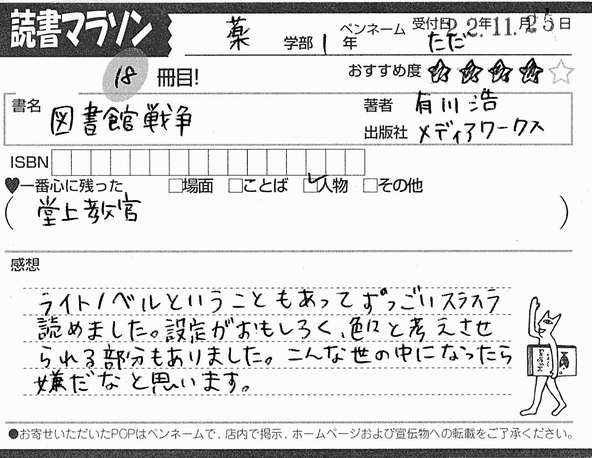 読書マラソン
薬 学部 1 年 ペンネーム ただ 受付日 22年11月25日
18 冊目! おすすめ度 ★★★★☆
書名 図書館戦争
著者 有川浩
出版社 メディアワークス
ISBN
♥一番心に残った □場面 □ことば ☑人物 □その他
( 堂上教官 )
感想
ライトノベルということもあってずっごいスラスラ
読めました。設定がおもしろく、色々と考えさせ
られる部分もありました。こんな世の中になったら
嫌だなと思います。
●お寄せいただいたPOPはペンネームで、店内で掲示、ホームページおよび宣伝物への転載をご了承ください。